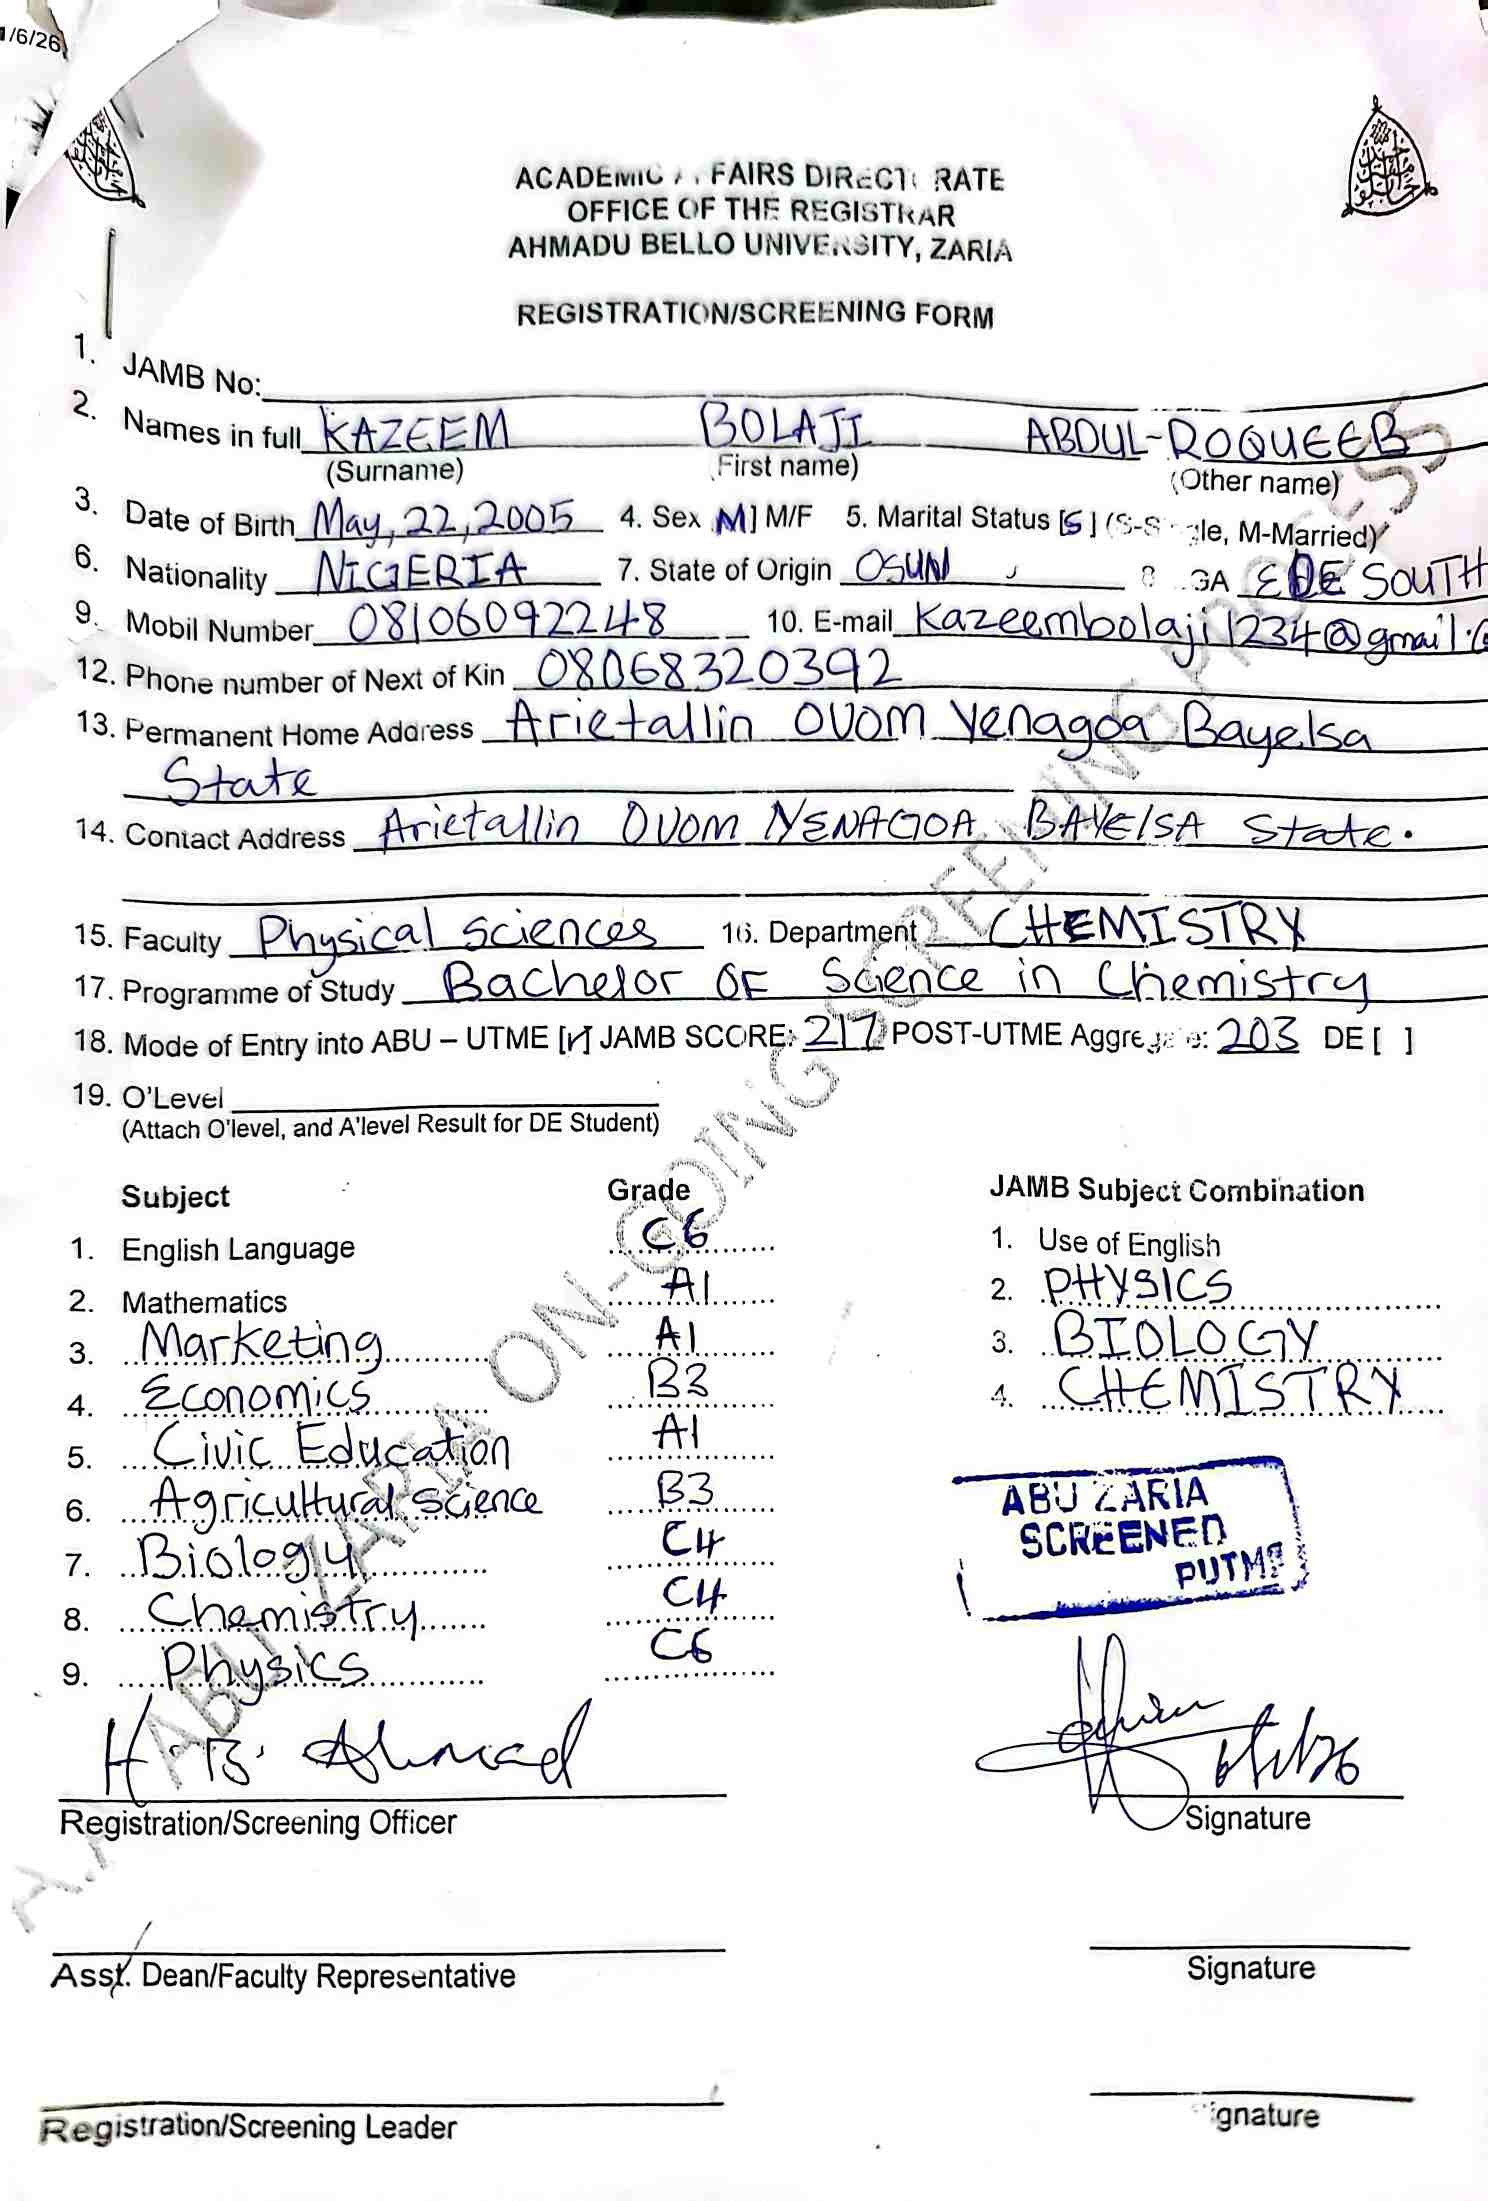 1/6/26
ACADEMIC AFFAIRS DIRECTORATE
OFFICE OF THE REGISTRAR
AHMADU BELLO UNIVERSITY, ZARIA
REGISTRATION/SCREENING FORM
1. JAMB No:
2. Names in full KAZEEM BOLAJI ABDUL-ROQUEEB
(Surname) (First name) (Other name)
3. Date of Birth May, 22, 2005 4. Sex [M] M/F 5. Marital Status [S] (S-Single, M-Married)
6. Nationality NIGERIA 7. State of Origin OSUN 8. LGA EDE SOUTH
9. Mobil Number 08106092248 10. E-mail kazeembolaji1234@gmail.c
12. Phone number of Next of Kin 08068320392
13. Permanent Home Address Arietallin OVOM Yenagoa Bayelsa
State
14. Contact Address Arietallin OVOM YENAGOA BAYELSA State.
15. Faculty Physical sciences 16. Department CHEMISTRY
17. Programme of Study Bachelor OF Science in Chemistry
18. Mode of Entry into ABU – UTME [✓] JAMB SCORE: 217 POST-UTME Aggregate: 203 DE [ ]
19. O'Level
(Attach O'level, and A'level Result for DE Student)
Subject Grade JAMB Subject Combination
1. English Language C6 1. Use of English
2. Mathematics A1 2. PHYSICS
3. Marketing A1 3. BIOLOGY
4. Economics B3 4. CHEMISTRY
5. Civic Education A1
6. Agricultural science B3
7. Biology C4
8. Chemistry C4
9. Physics C6
ABU ZARIA
SCREENED
PUTME
H.B. Ahmad
Registration/Screening Officer Signature
Asst. Dean/Faculty Representative Signature
Registration/Screening Leader Signature
ABU ZARIA ON-GOING SCREENING PROCESS